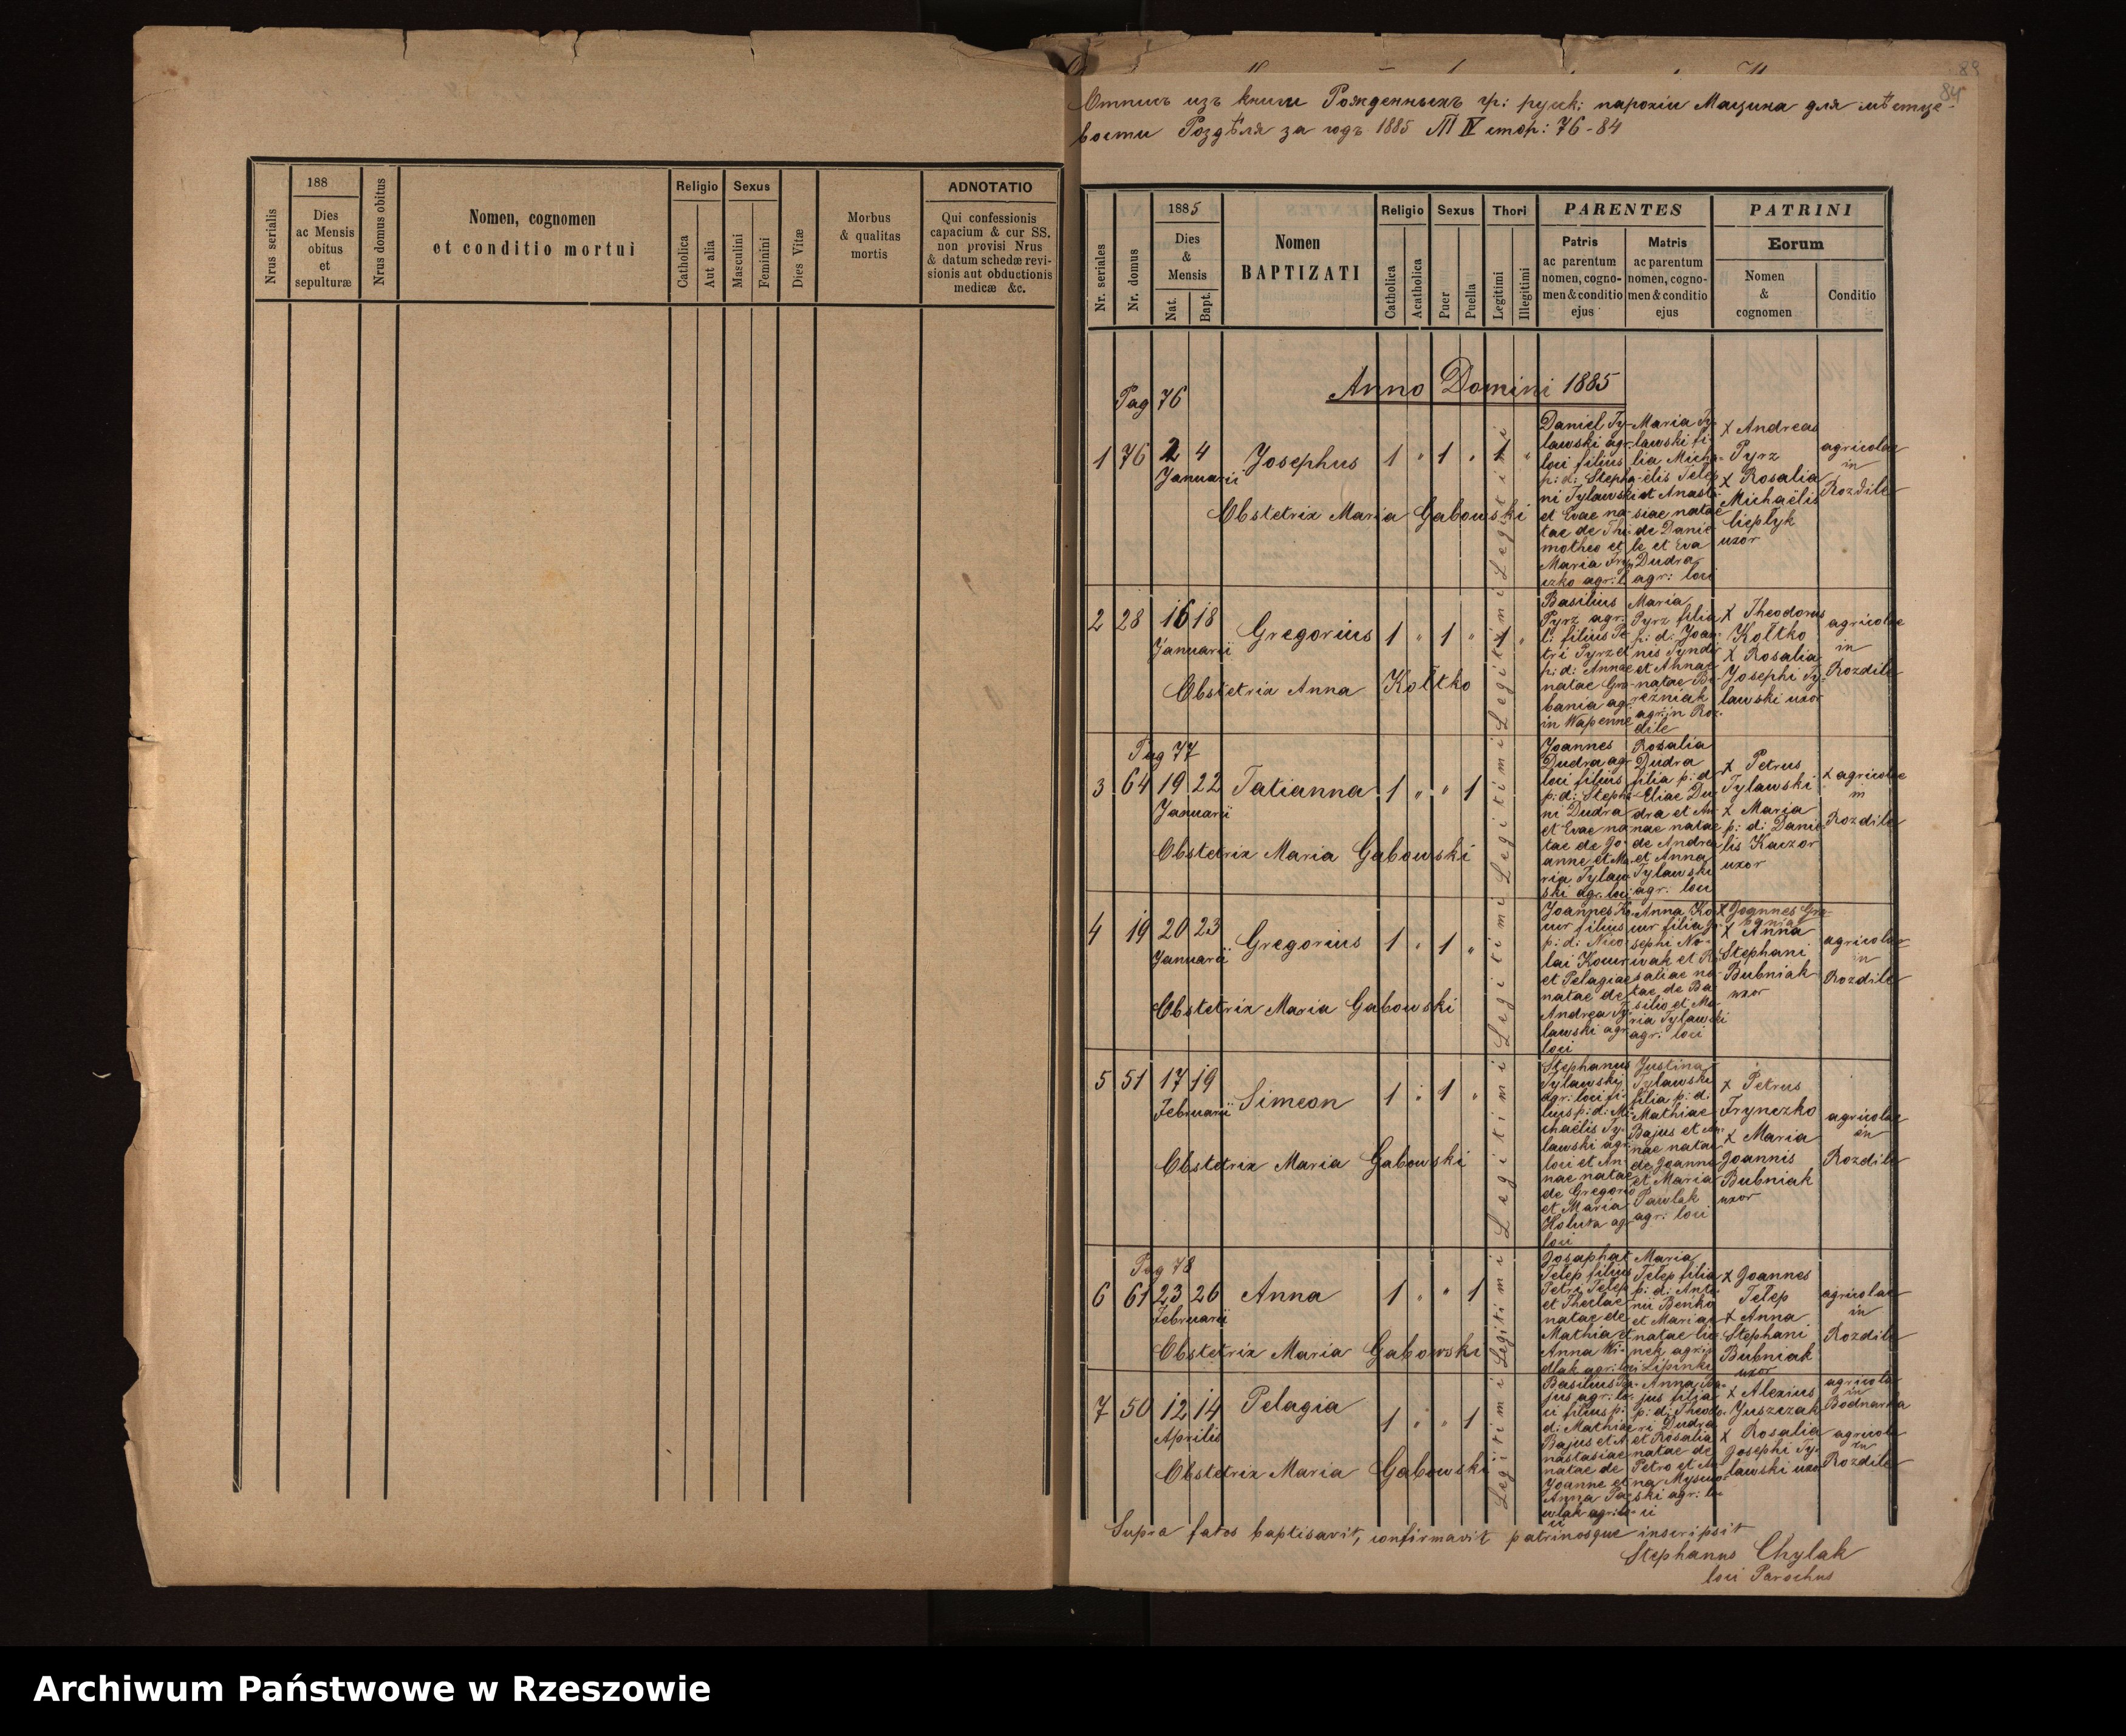 188
Nrus serialis
Dies
ac Mensis
obitus
et
sepulturæ
Nrus domus obitus
Nomen, cognomen
et conditio mortui
Religio
Catholica
Aut alia
Sexus
Masculini
Feminini
Dies Vitæ
Morbus
& qualitas
mortis
ADNOTATIO
Qui confessionis
capacium & cur SS.
non provisi Nrus
& datum schedæ revi-
sionis aut obductionis
medicæ &c.
89
84
Отписъ изъ книги Рожденныхъ гр: руск: парохіи Мацина для мѣстце-
вости Роздѣля за годъ 1885 Т IV стор: 76-84
Nr. seriales
Nr. domus
1885
Dies
&
Mensis
Nat.
Bapt.
Nomen
BAPTIZATI
Religio
Catholica
Acatholica
Sexus
Puer
Puella
Thori
Legitimi
Illegitimi
PARENTES
Patris
ac parentum
nomen, cogno-
men & conditio
ejus
Matris
ac parentum
nomen, cogno-
men & conditio
ejus
PATRINI
Eorum
Nomen
&
cognomen
Conditio
Anno Domini 1885
Pag 76
1 76 2 4 Josephus 1 " 1 " 1 "
Januarii
Obstetrix Maria Gabowski
Legitimi
Daniel Ty-
lawski agr.
loci filius
p: d: Stepha-
ni Tylawski
et Evae na-
tae de Thi-
motheo et
Maria Fryn-
czko agr: l
Maria Ty-
lawski fi-
lia Micha-
elis Telep
et Anasta-
siae natae
de Danie-
le et Eva
Dudra
agr: loci
x Andreas
Pyrz
x Rosalia
Michaëlis
Cieplyk
uxor
agricolae
in
Rozdile
2 28 16 18 Gregorius 1 " 1 " 1 "
Januarii
Obstetrix Anna Kołtko
Legitimi
Basilius
Pyrz agr.
l: filius Pe-
tri Pyrz et
p: d: Annae
natae Gra-
bania agr.
in Wapenne
Maria
Pyrz filia
p: d: Joan-
nis Tyndi
et Annae
natae Be-
rezniak
agr: in Roz-
dile
x Theodorus
Kołtko
x Rosalia
Josephi Ty-
lawski uxor
agricolae
in
Rozdile
Pag 77
3 64 19 22 Tatianna 1 " " 1
Januarii
Obstetrix Maria Gabowski
Legitimi
Joannes
Dudra agr
loci filius
p: d: Stepha-
ni Dudra
et Evae na-
tae de Jo-
anne et Ma-
ria Tylaw-
ski agr. loci
Rosalia
Dudra
filia p: d:
Eliae Du-
dra et An-
nae natae
de Andrea
et Anna
Tylawski
agr: loci
x Petrus
Tylawski
x Maria
p: d: Danie-
lis Kaczor
uxor
x agricolae
in
Rozdile
4 19 20 23 Gregorius 1 " 1 "
Januarii
Obstetrix Maria Gabowski
Legitimi
Joannes Ko-
cur filius
p: d: Nico-
lai Kocur
et Pelagiae
natae de
Andrea Ty-
lawski agr.
loci
Anna Ko-
cur filia Jo-
sephi No-
wak et Ro-
saliae na-
tae de Ba-
silio et Ma-
ria Tylawski
agr: loci
x Joannes Gra-
bania
x Anna
Stephani
Bubniak
uxor
agricolae
in
Rozdile
5 51 17 19 Simeon 1 " 1 "
Februarii
Obstetrix Maria Gabowski
Legitimi
Stephanus
Tylawski
agr: loci fi-
lius p: d: Mi-
chaëlis Ty-
lawski agr.
loci et An-
nae natae
de Gregorio
et Maria
Holuta agr
loci
Justina
Tylawski
filia p: d:
Mathiae
Bajus et An-
nae natae
de Joanne
et Maria
Pawlak
agr: loci
x Petrus
Frynczko
x Maria
Joannis
Bubniak
uxor
agricolae
in
Rozdile
Pag 78
6 61 23 26 Anna 1 " " 1
Februarii
Obstetrix Maria Gabowski
Legitimi
Josaphat
Telep filius
Petri Telep
et Theclae
natae de
Mathia et
Anna Wi-
dlak agr: loci
Maria
Telep filia
p: d: Anto-
nii Benko
et Mariae
natae Cu-
nek agr: in
Lipinki
x Joannes
Telep
x Anna
Stephani
Bubniak
uxor
agricolae
in
Rozdile
7 50 12 14 Pelagia 1 " " 1
Aprilis
Obstetrix Maria Gabowski
Legitimi
Basilius Ba-
jus agr: lo-
ci filius p:
d: Mathiae
Bajus et A-
nastasiae
natae de
Joanne et
Anna Pa-
wlak agr: lo-
ci
Anna Ba-
jus filia
p: d: Theodo-
ri Dudra
et Rosalia
natae de
Petro et An-
na Myscio-
ski agr: lo-
ci
x Alexius
Juszczak
x Rosalia
Josephi Ty-
lawski uxor
agricola
in
Bodnarka
agricola
in
Rozdile
Supra fatos baptisavit, confirmavit patrinosque inscripsit
Stephanus Chylak
loci Parochus
Archiwum Państwowe w Rzeszowie